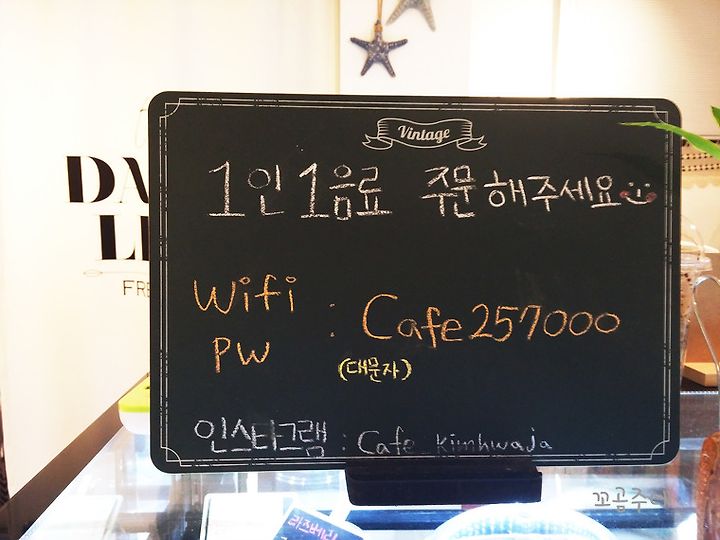 Vintage
1인 1음료 주문해주세요
Wifi
PW : Cafe257000
(대문자)
인스타그램 : Cafe kimhwaja